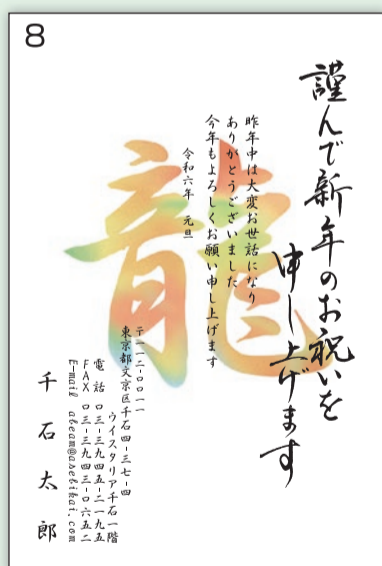 8
謹んで新年のお祝いを
申し上げます
昨年中は大変お世話になり
ありがとうございました
今年もよろしくお願い申し上げます
令和六年 元旦
龍
〒一一二-〇〇一一
東京都文京区千石四-三七-四
ウイスタリア千石一階
電話 〇三-三九四五-二一九五
FAX 〇三-三九四三-〇六五二
E-mail abeam@asebikai.com
千石太郎